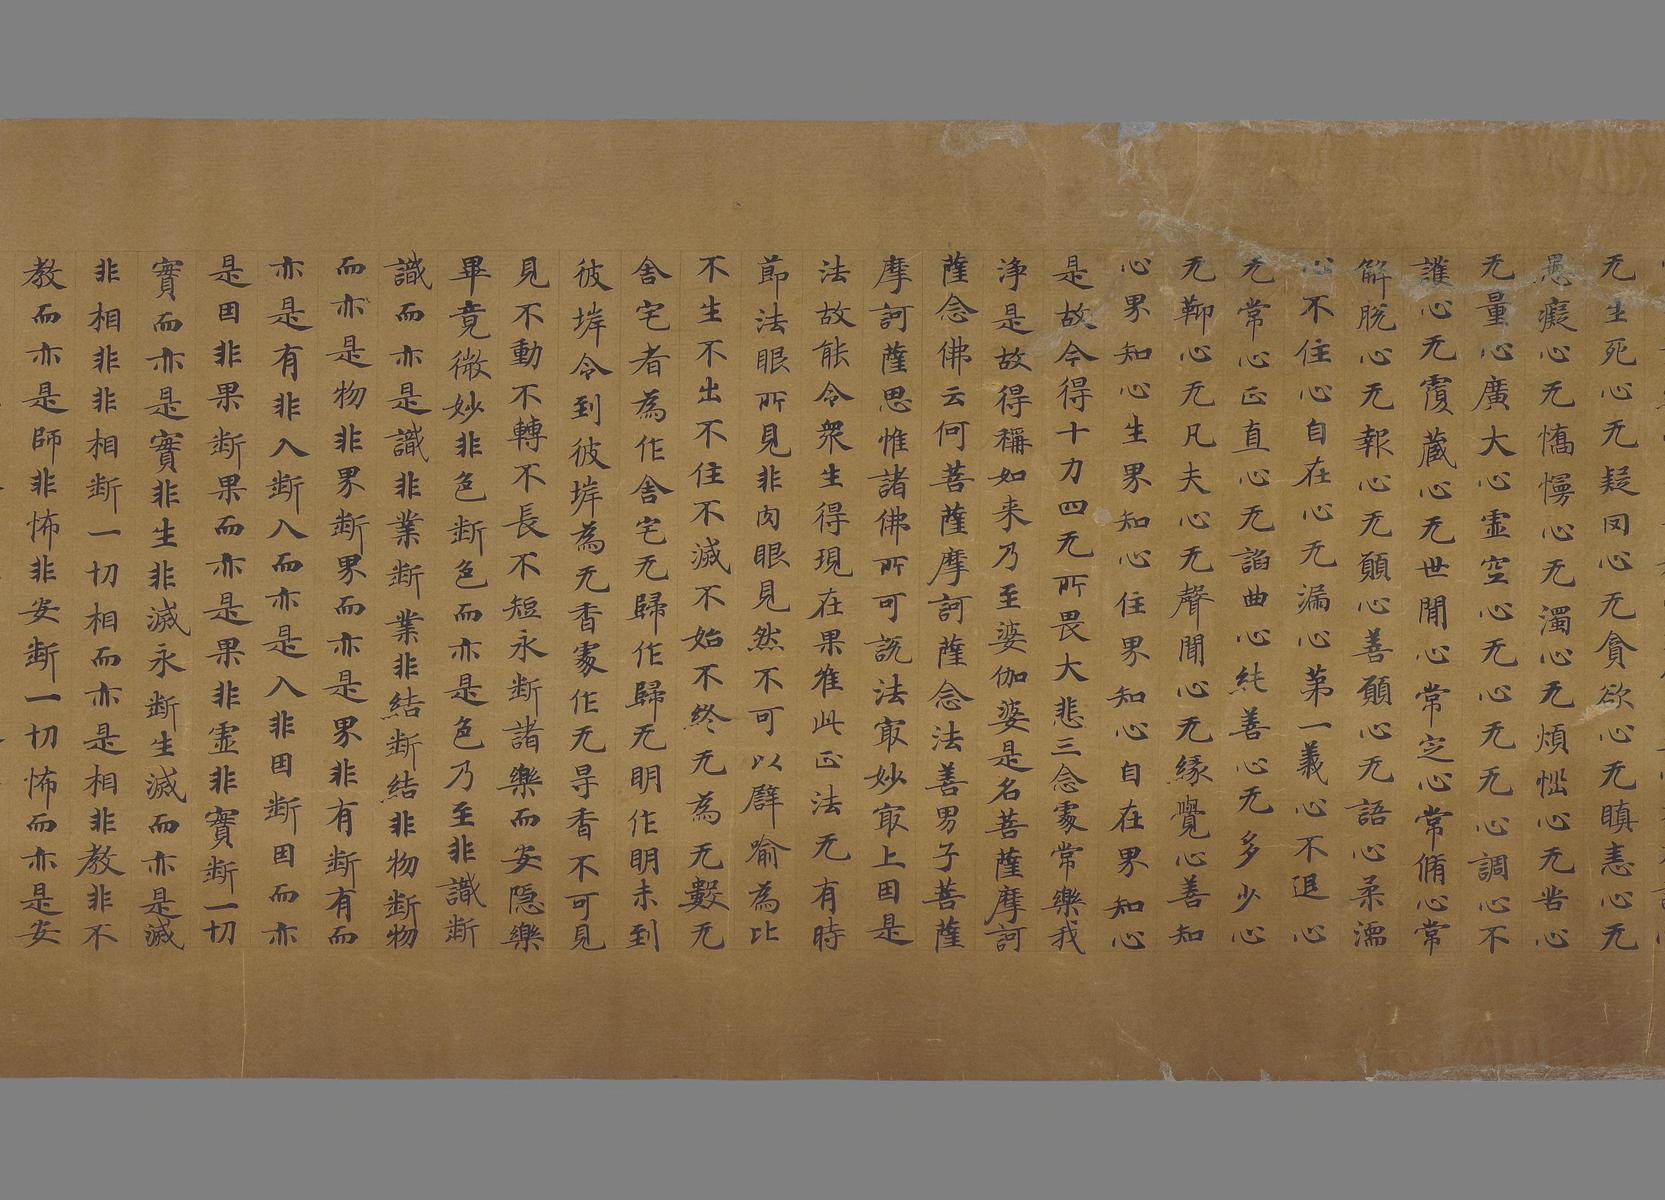 无生死心无疑罔心无貪欲心无瞋恚心无
愚癡心无憍慢心无濁心无煩惱心无苦心
无量心廣大心虛空心无心无无心調心不
護心无覆藏心无世間心常定心常脩心常
解脫心无報心无願心善願心无語心柔濡
心不住心自在心无漏心第一義心不退心
无常心正直心无諂曲心純善心无多少心
无鞕心无凡夫心无聲聞心无緣覺心善知
心界知心生界知心住界知心自在界知心
是故今得十力四无所畏大悲三念處常樂我
淨是故得稱如来乃至婆伽婆是名菩薩摩訶
薩念佛云何菩薩摩訶薩念法善男子菩薩
摩訶薩思惟諸佛所可說法㝡妙㝡上因是
法故能令衆生得現在果唯此正法无有時
節法眼所見非肉眼見然不可以譬喻為比
不生不出不住不滅不始不終无為无數无
舍宅者為作舍宅无歸作歸无明作明未到
彼岸令到彼岸為无香處作无㝵香不可見
見不動不轉不長不短永断諸樂而安隱樂
畢竟微妙非色断色而亦是色乃至非識断
識而亦是識非業断業非結断結非物断物
而亦是物非界断界而亦是界非有断有而
亦是有非入断入而亦是入非因断因而亦
是因非果断果而亦是果非虛非實断一切
實而亦是實非生非滅永断生滅而亦是滅
非相非非相断一切相而亦是相非教非不
教而亦是師非怖非安断一切怖而亦是安